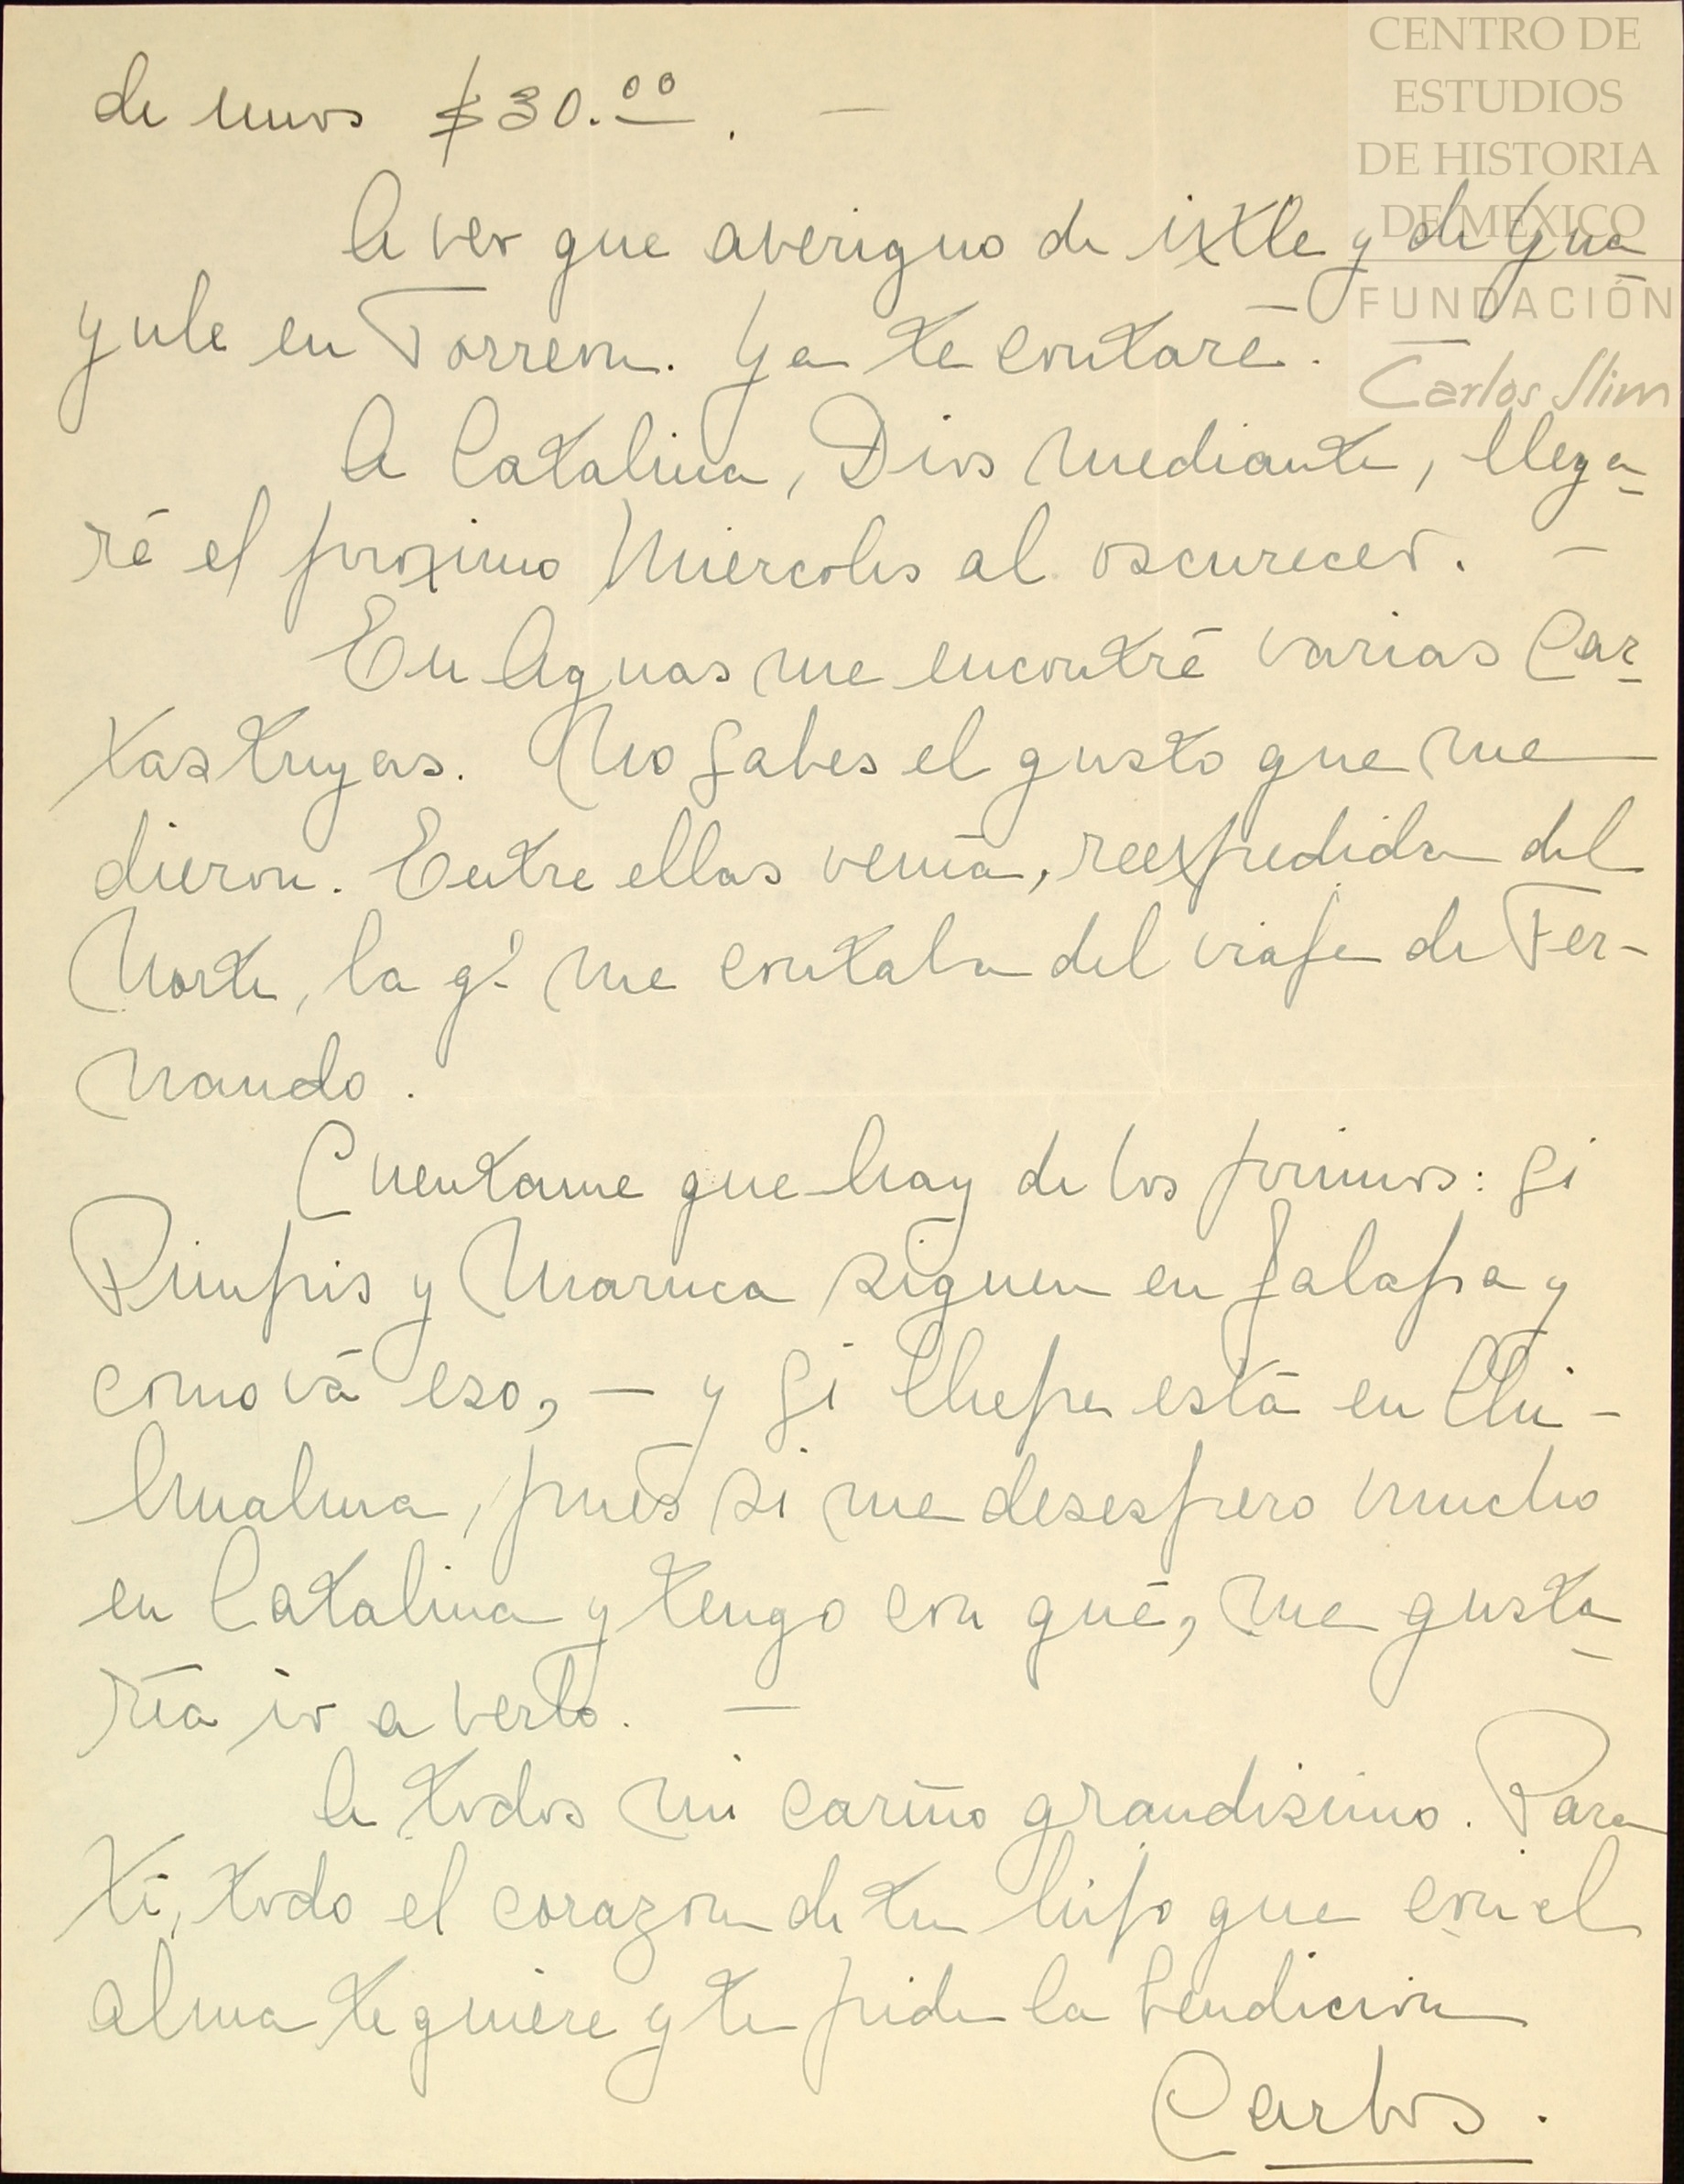 CENTRO DE
ESTUDIOS
DE HISTORIA
DE MEXICO
FUNDACIÓN
Carlos Slim
de unos $30.00. —
A ver que averiguo de ixtle y de Gua
yule en Torreon. Ya te contaré. —
A Catalina, Dios mediante, llega-
ré el proximo Miercoles al oscurecer. —
En Aguas me encontré varias Car-
tas tuyas. No sabes el gusto que me
dieron. Entre ellas venía, reexpedida del
Norte, la q' me contaba del viaje de Fer-
nando.
Cuentame que hay de los primos: si
Pimpis y Maruca siguen en Jalapa y
como vá eso, — y si Chepe está en Chi-
huahua, pués si me desespero mucho
en Catalina y tengo con qué, me gusta-
ría ir a verlo. —
A todos mi cariño grandisimo. Para
tí, todo el corazon de tu hijo que con el
alma te quiere y te pide la bendicion
Carlos.